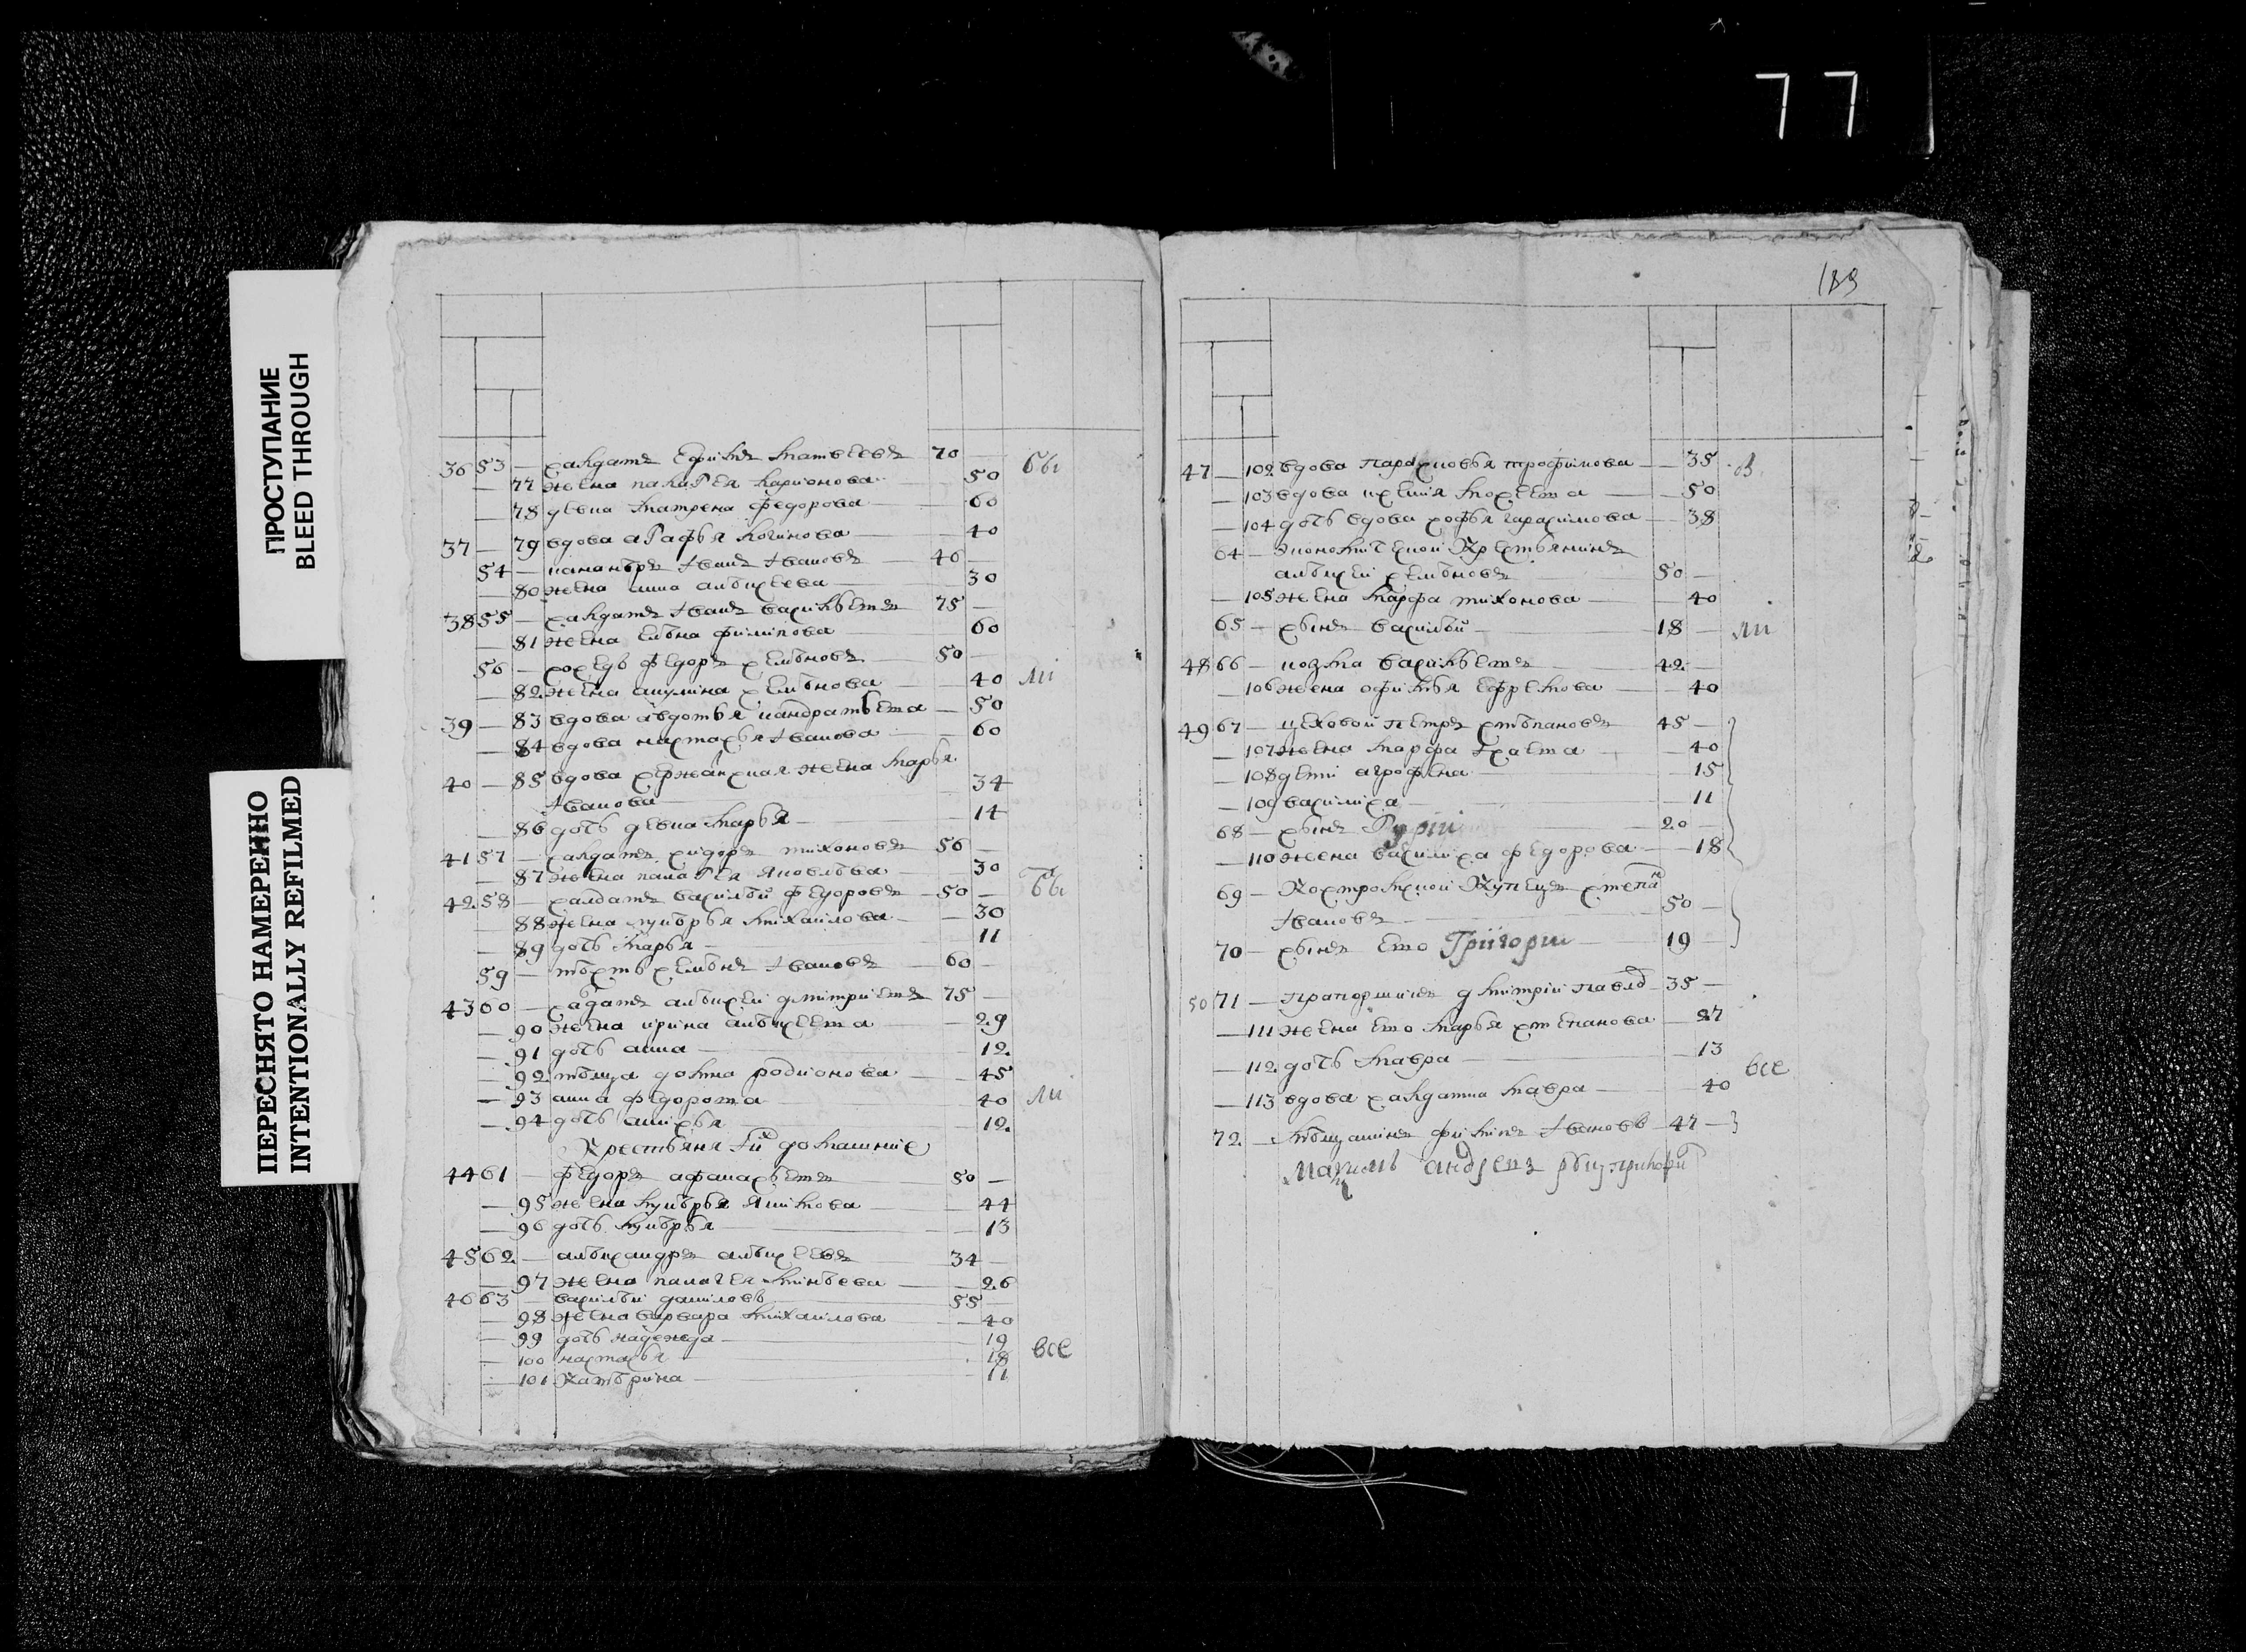 77
ПРОСТУПАНИЕ
BLEED THROUGH
ПЕРЕСНЯТО НАМЕРЕННО
INTENTIONALLY REFILMED
36 53 — салдатъ Ефимъ матвеевъ 70 — бы
— 77 жена палагея ларионова — 50
— 78 девка матрена федорова — 60
37 — 79 вдова агафья логинова — 40
54 — иванъ ивановъ 40
— 80 жена анна алѣксеева — 30
38 55 — салдатъ иванъ васильевъ 75 —
— 81 жена елѣна филипова — 60
56 — соседъ федоръ семѣновъ 50 —
— 82 жена акулина семѣнова — 40 ли
39 — 83 вдова авдотья кандратьева — 50
— 84 вдова настасья иванова — 60
40 — 85 вдова сержанская жена марья
иванова — 34
— 86 дочь девка марья — 14
41 57 — салдатъ сидоръ тихоновъ 50 —
— 87 жена палагея яковлѣва — 30
42 58 — салдатъ василѣй федоровъ 50 —
— 88 жена лукѣрья михаилова — 30
— 89 дочь марья — 11
59 — тѣсть семѣнъ ивановъ 60 —
43 60 — садатъ алѣксеи дмитриевъ 75 —
— 90 жена ирина алѣксеева — 29
— 91 дочь анна — 12
— 92 тѣща домна родионова — 45
— 93 анна федорова — 40 ли
— 94 дочь анисья — 12
домашние
44 61 — федоръ афанасьевъ 50 —
— 95 жена лукѣрья якимова — 44
— 96 дочь лукѣрья — 13
45 62 — алѣксандръ алѣксеевъ 34 —
— 97 жена палагея минѣева — 26
46 63 — василѣй даниловъ 55 —
— 98 жена варвара михаилова — 40
— 99 дочь надежда — 19 все
— 100 настасья — 18
— 101 катѣрина — 11
189
47 — 102 вдова парасковья трофимова — 35
— 103 вдова ксения мосеева — 50
— 104 дочь вдова софья гарасимова — 38
64 — экономической крестьянинъ
алѣксеи семѣновъ 50 —
— 105 жена марфа тихонова — 40
65 — сынъ василѣй — 18 — ли
48 66 — козма васильевъ 42 —
— 106 жена офимья ефремова — 40
49 67 — цеховой петръ стѣпановъ 45 —
— 107 жена марфа исаева — 40
— 108 дети агрофена — 15
— 109 василиса — 11
68 — сынъ Гурiи 20 —
— 110 жена василиса федорова — 18
69 — Костромской купецъ степан
ивановъ 50 —
70 — сынъ ево Григории 19
50 71 — прапорщикъ дмитрiй павлов 35 —
— 111 жена ево марья степанова — 27
— 112 дочь мавра — 13
— 113 вдова салдатка мавра — 40 все
72 — мѣщанинъ филипъ ивановъ 47 —